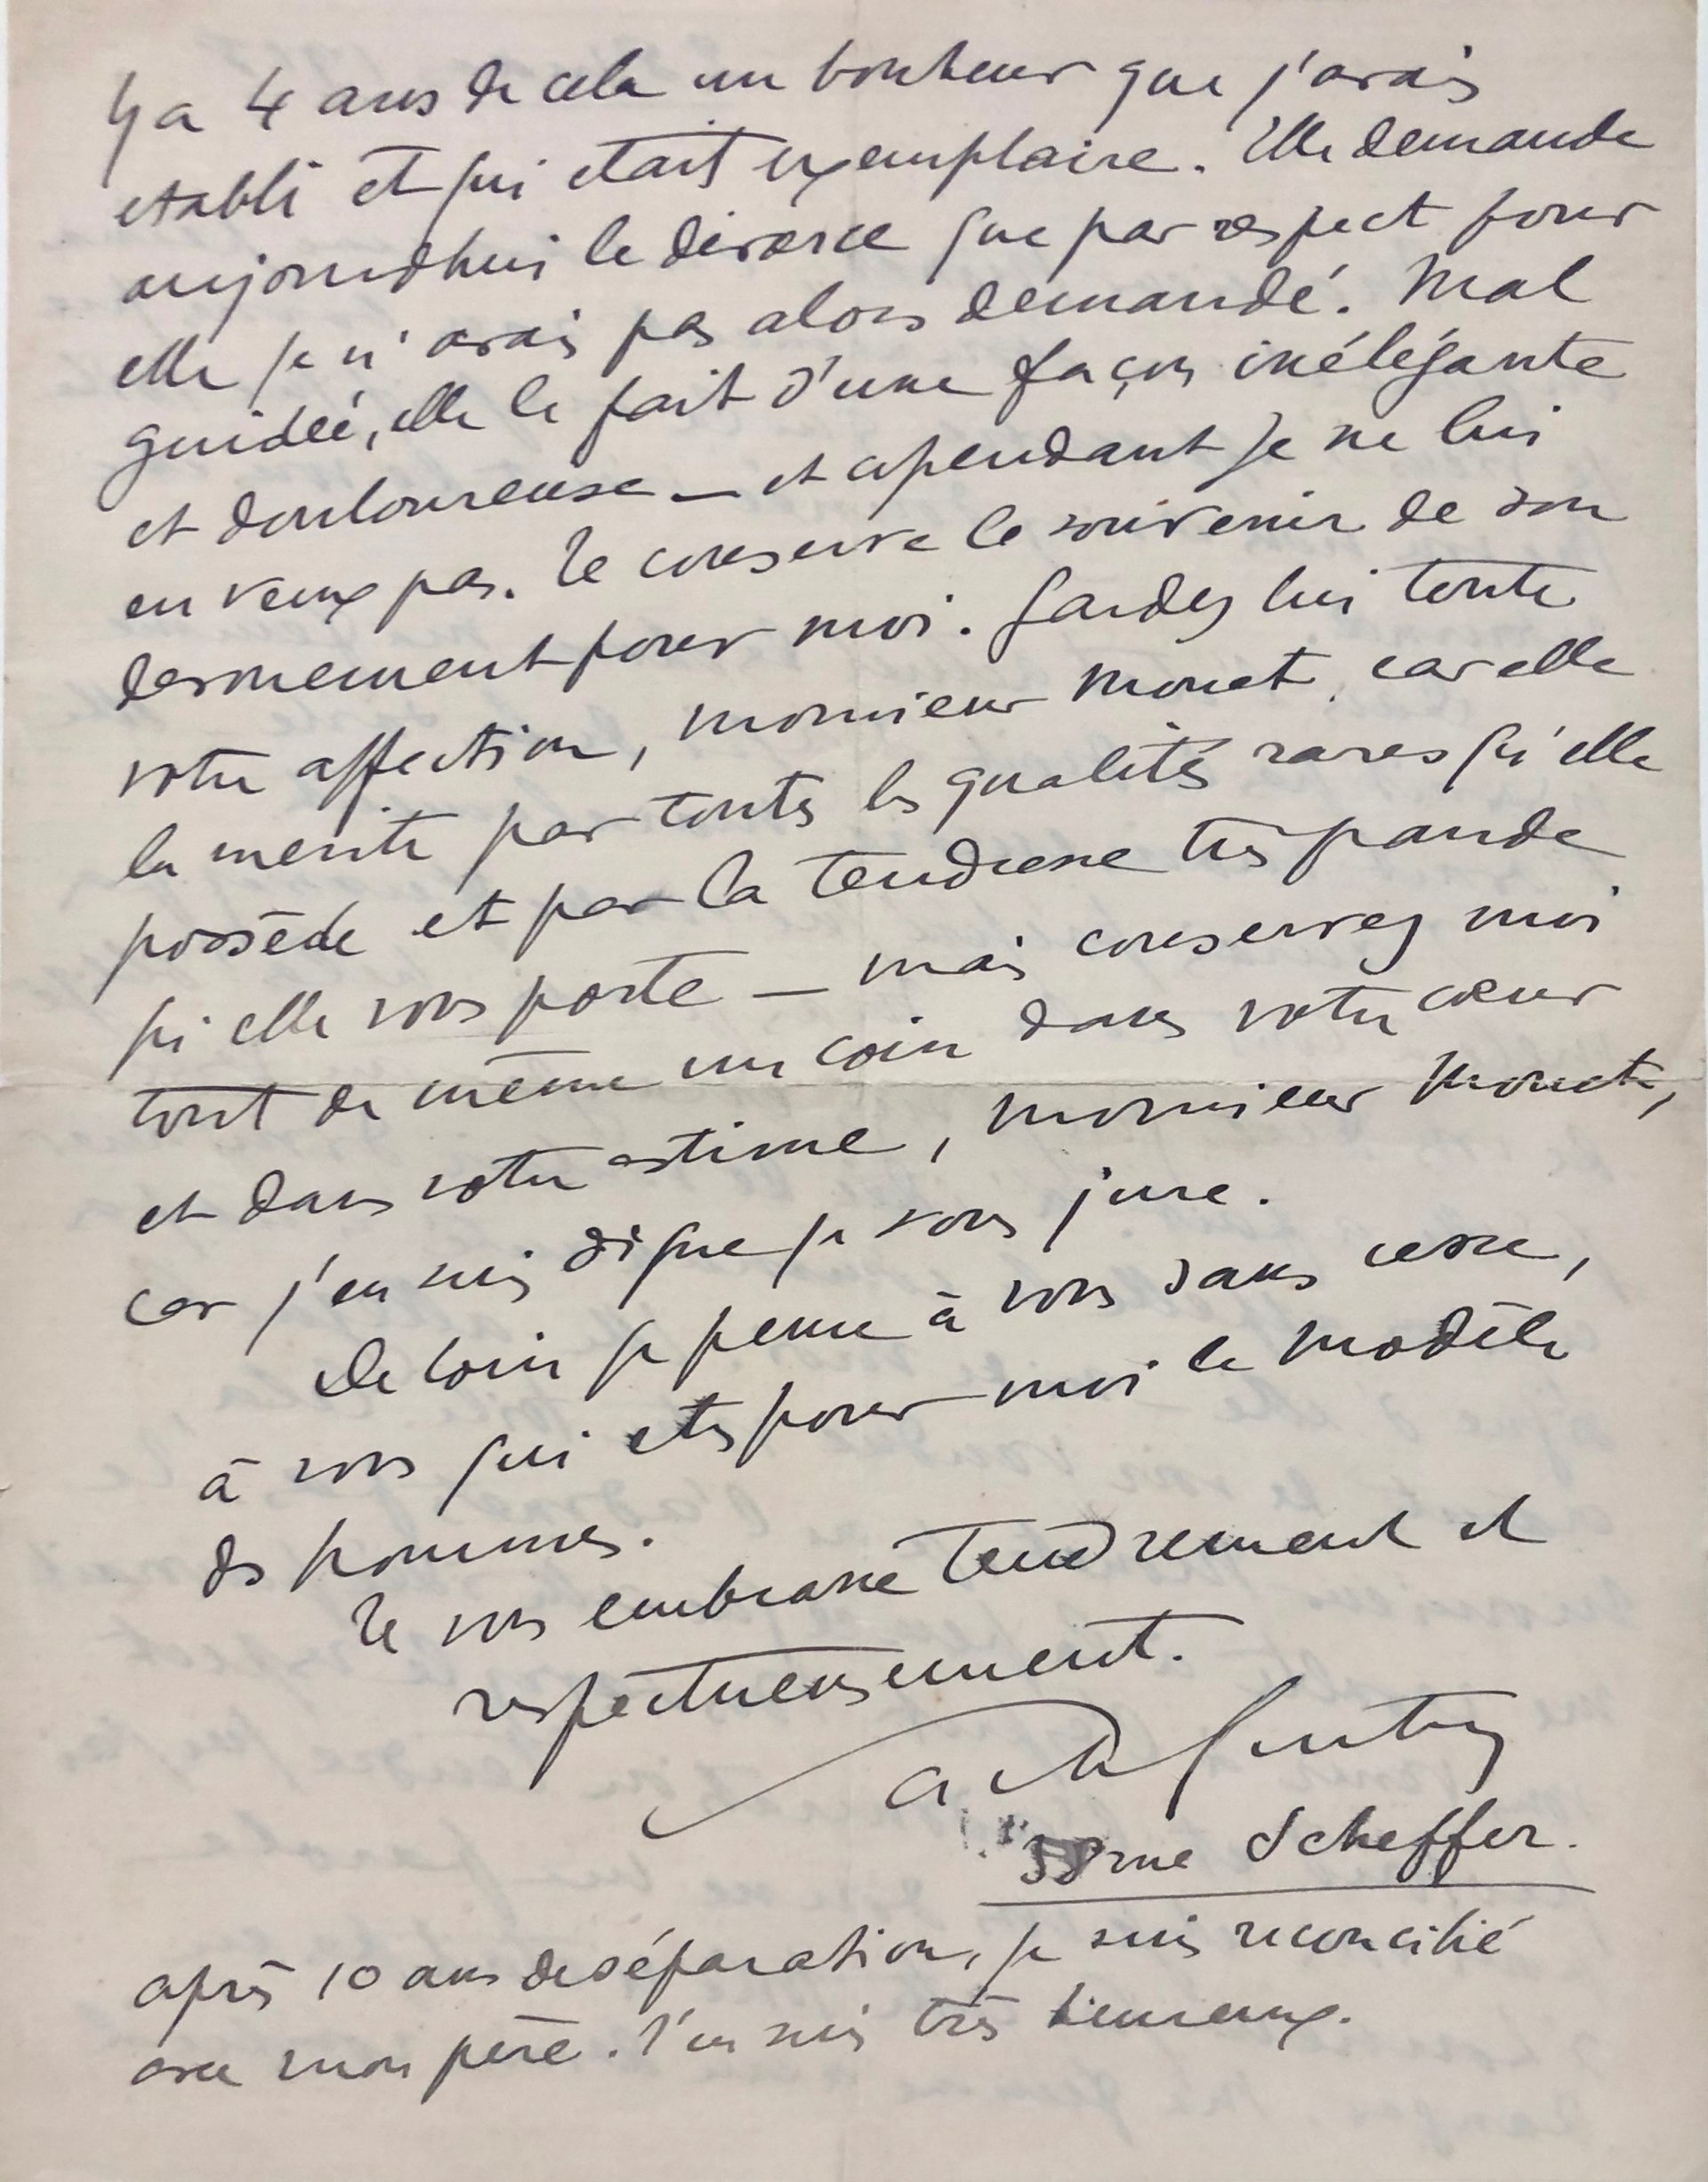 y a 4 ans de cela un bonheur que j'avais
etabli et qui etait exemplaire. Elle demande
aujourdhui le divorce que par respect pour
elle je n'avais pas alors demandé. Mal
guidée, elle le fait d'une façon inélégante
et douloureuse — et cependant je ne lui
en veux pas. Je conserve le souvenir de son
devouement pour moi. Gardez lui toute
votre affection, monsieur Monet, car elle
la merite par toutes les qualités rares qu'elle
possède et par la tendresse très grande
qu'elle vous porte — mais conservez moi
tout de même un coin dans votre cœur
et dans votre estime, monsieur Monet,
car j'en suis digne je vous jure.
De loin je pense à vous sans cesse,
à vous qui etes pour moi le modèle
des hommes.
Je vous embrasse tendrement et
respectueusement.
rue Scheffer.
après 10 ans de séparation, je suis reconcilié
avec mon père. J'en suis très heureux.